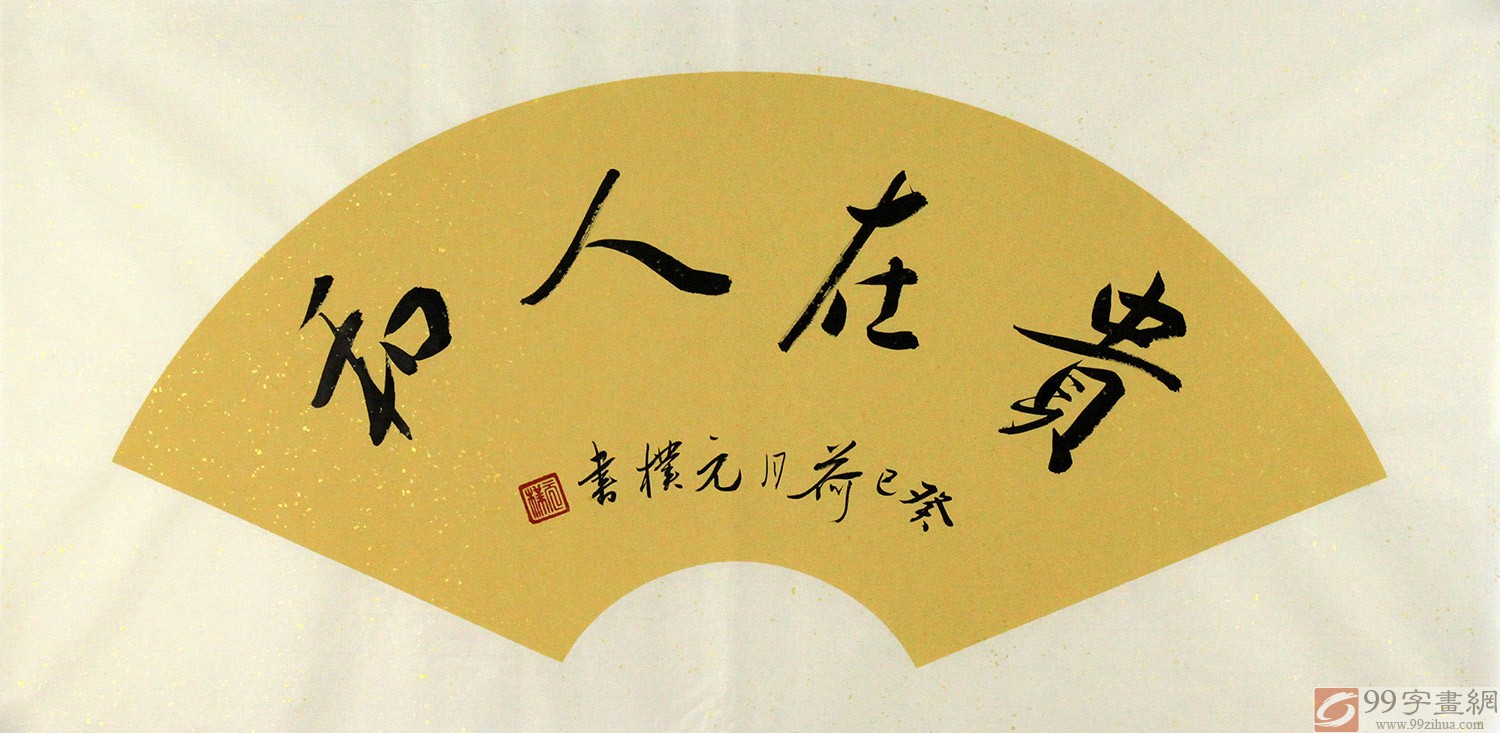 貴在人和
癸巳荷月元樸書
元樸
99字畫網
www.99zihua.com